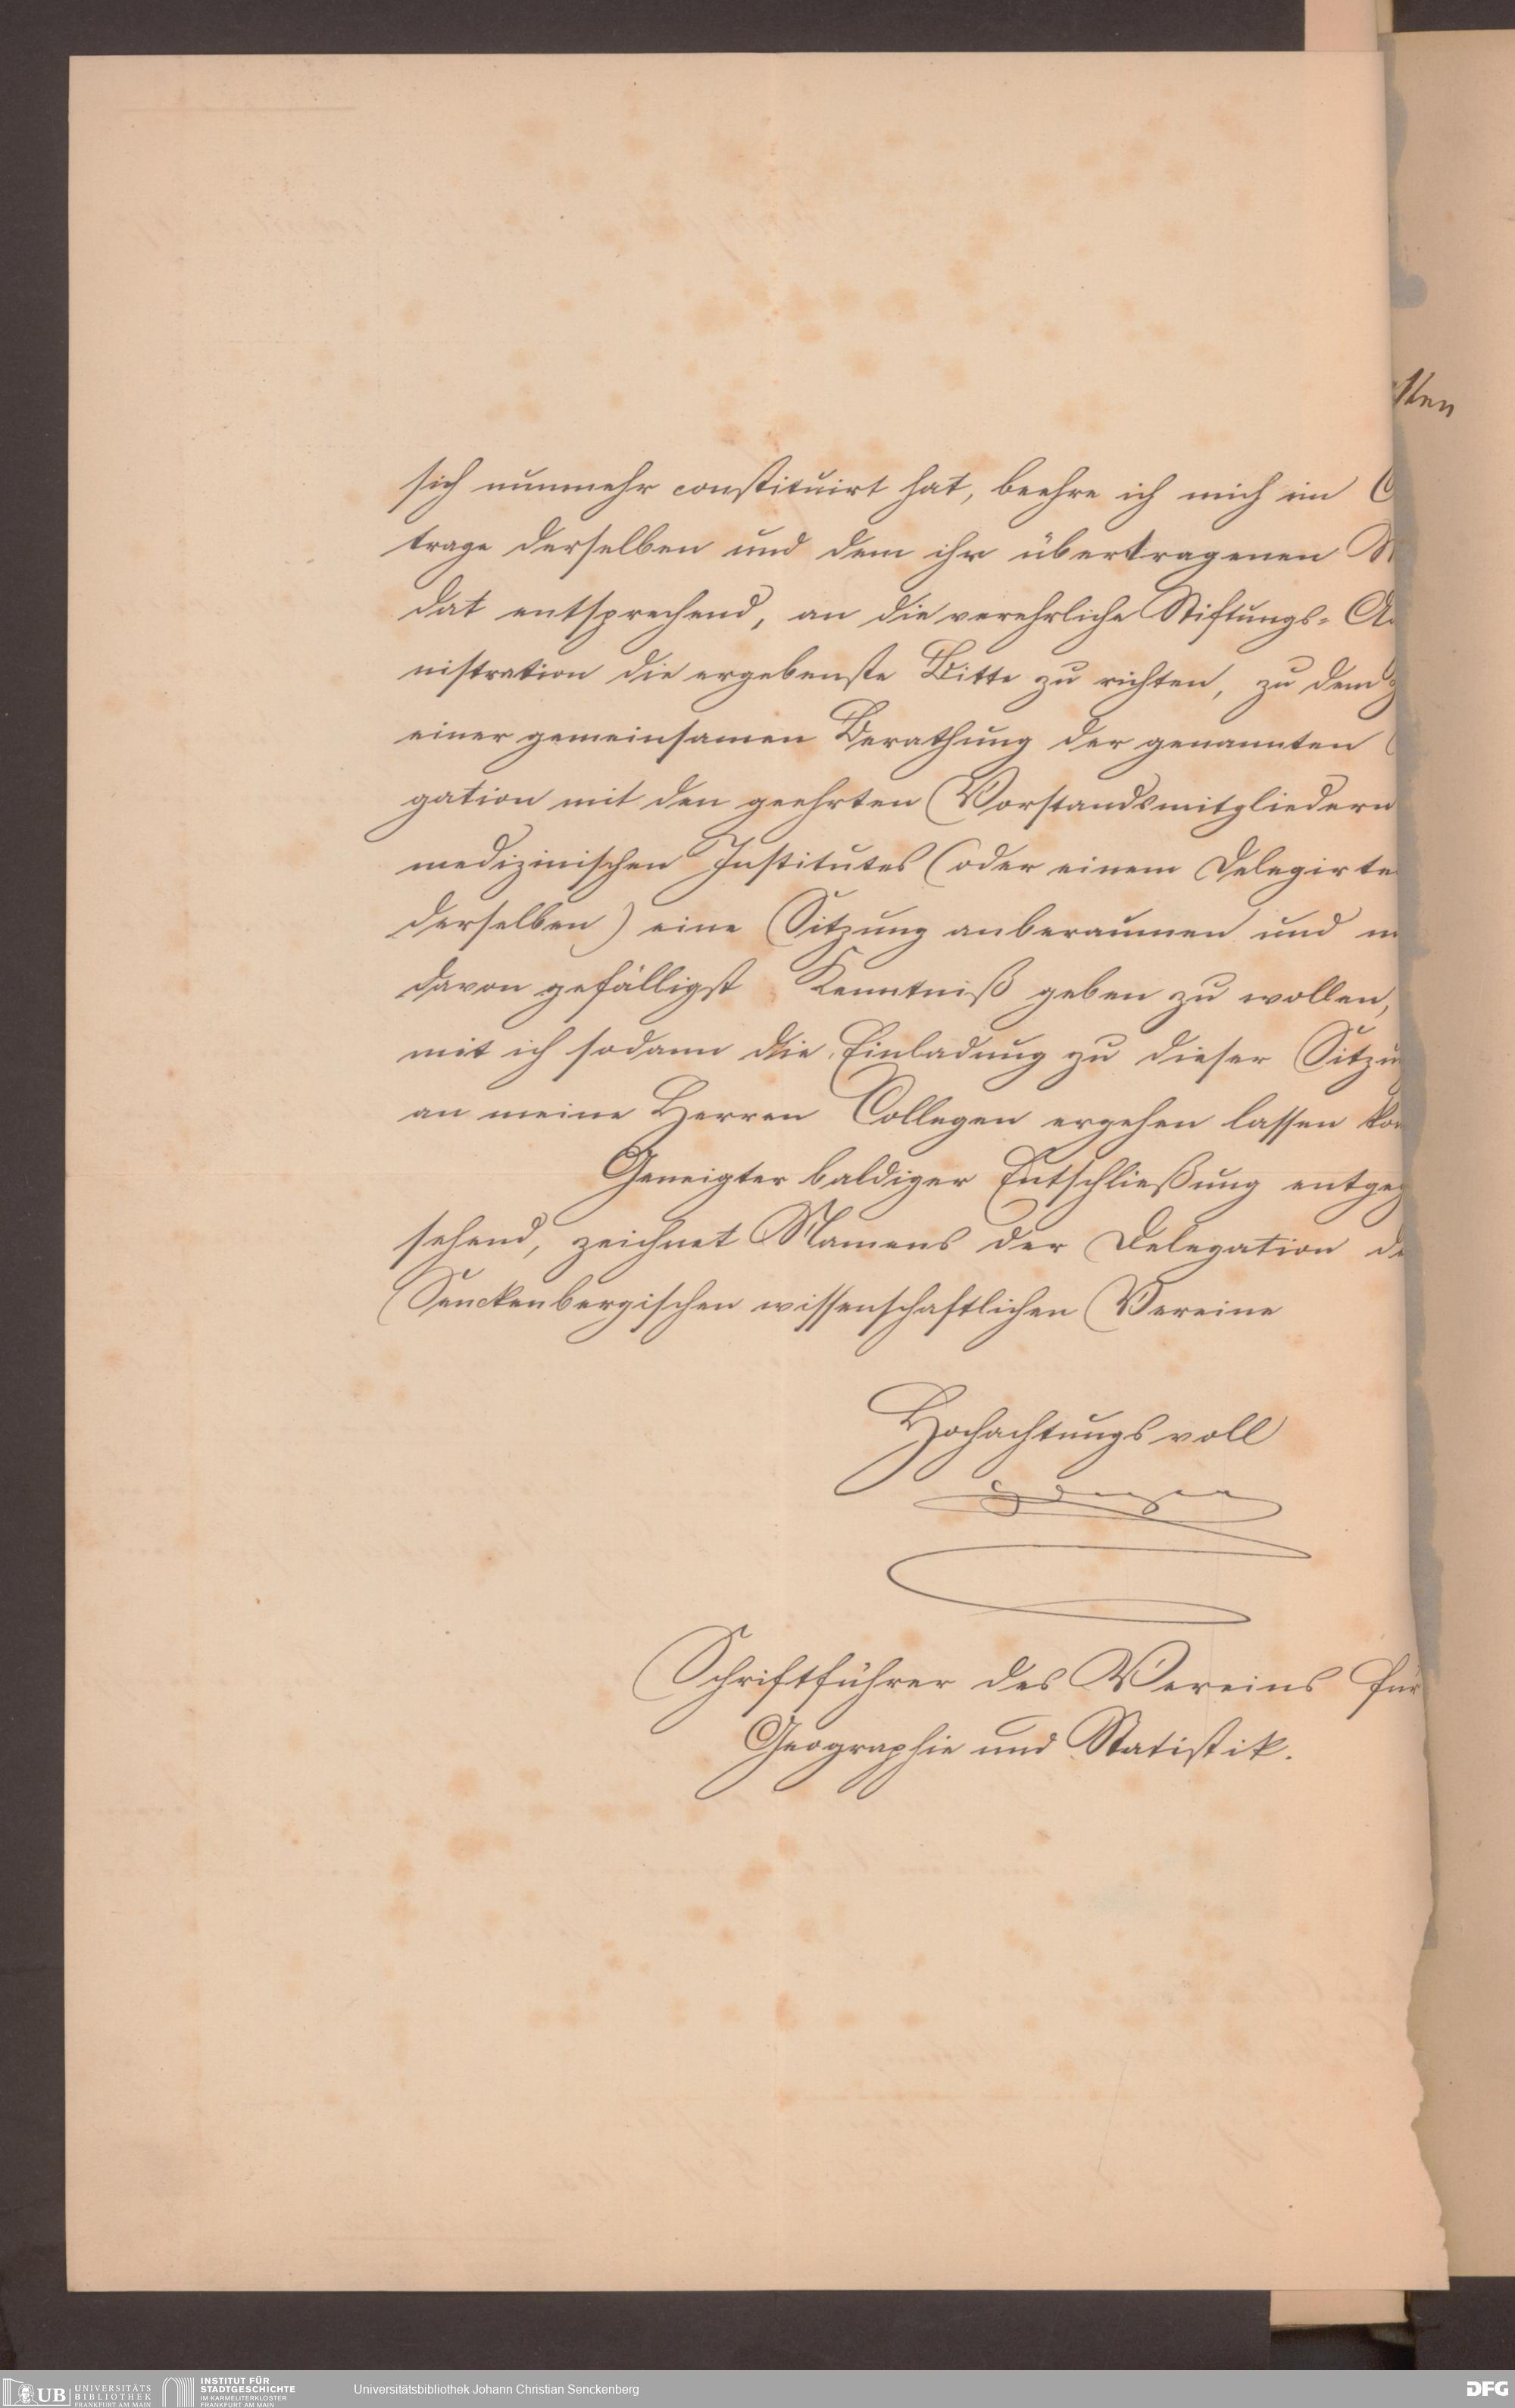 sich nunmehr constituirt hat, beehre ich mich im
trage derselben und dem ihr übertragenen
dat entsprechend, an die verehrliche Stiftungs-
nistration die ergebenste Bitte zu richten, zu dem
einer gemeinsamen Berathung der genannten
gation mit den geehrten Vorstandsmitgliedern
medizinischen Institutes (oder einem Delegirte
derselben) eine Sitzung anberaumen und
davon gefälligst Kenntniß geben zu wollen,
mit ich sodann die Einladung zu dieser Sitzu
an meine Herren Collegen ergehen lassen
Geneigter baldiger Entschließung entgeg
sehend, zeichnet Namens der Delegation de
Senckenbergischen wissenschaftlichen Vereine
Hochachtungsvoll
Schriftführer des Vereins für
Geographie und Statistik.
UB UNIVERSITÄTS BIBLIOTHEK FRANKFURT AM MAIN
INSTITUT FÜR STADTGESCHICHTE IM KARMELITERKLOSTER FRANKFURT AM MAIN
Universitätsbibliothek Johann Christian Senckenberg
DFG